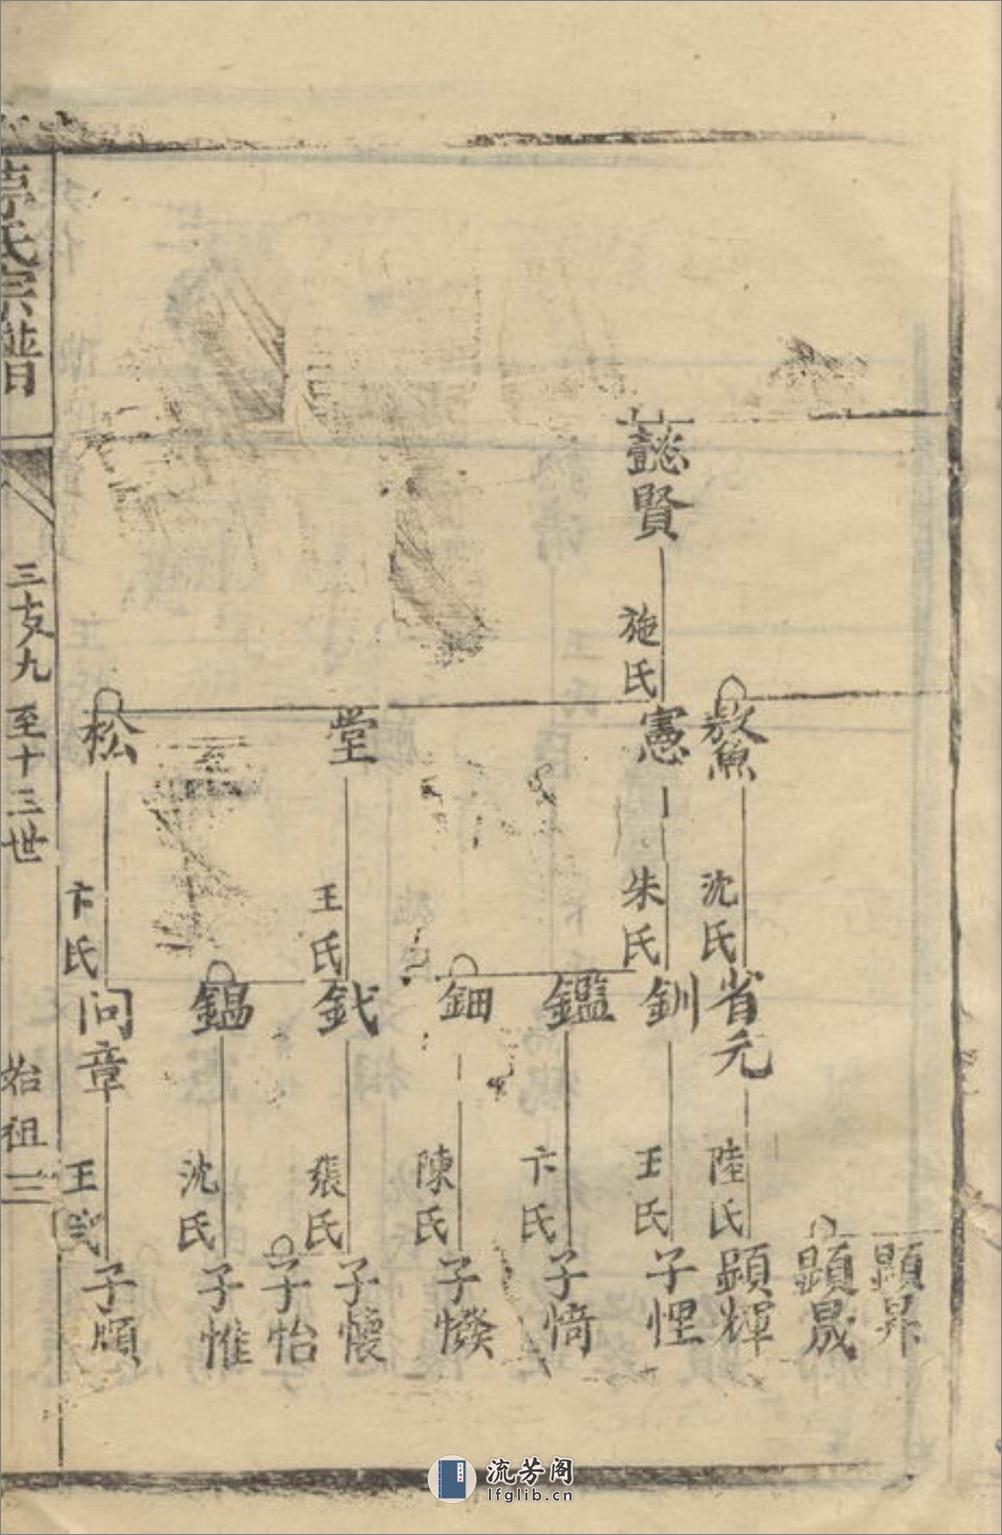 懿賢
施氏
鰲
憲
堂
松
沈氏
朱氏
王氏
卞氏
省元
釧
鑑
鈿
釴
鎾
問章
陸氏
王氏
卞氏
陳氏
張氏
沈氏
王氏
顯昇
顯晟
顯輝
子悝
子㥓
子懷
子怡
子惟
子順
氏宗譜
三支九至十三世
始祖三
流芳阁
lfglib.cn